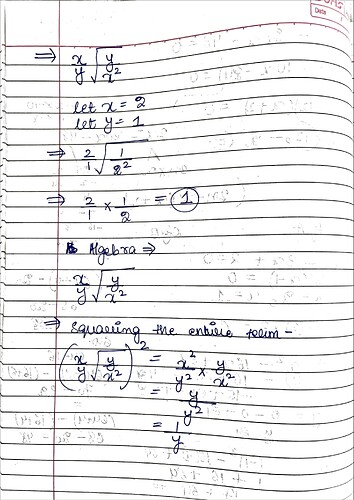 ⇒ x/y √(y/x²)
let x = 2
let y = 1
⇒ 2/1 √(1/2²)
⇒ 2/1 × 1/2 = 1
Algebra ⇒
x/y √(y/x²)
⇒ squaring the entire term -
(x/y √(y/x²))² = x²/y² × y/x²
= y/y²
= 1/y